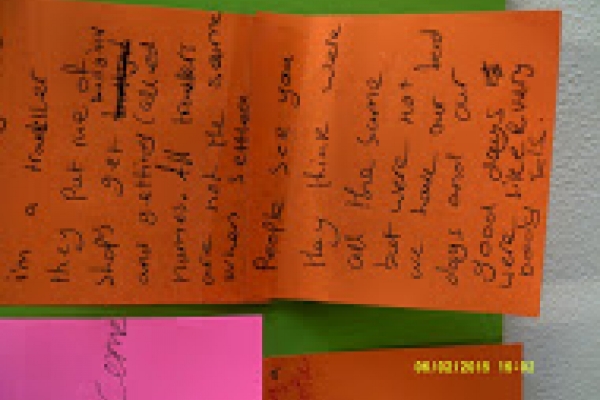 i'm a traveller
they put me of
shops get
and getting called
names. All travlers
are not the same
when
People see you
they think were
all the same
but were not
we have our bad
days and our
good days
were like every
body
come